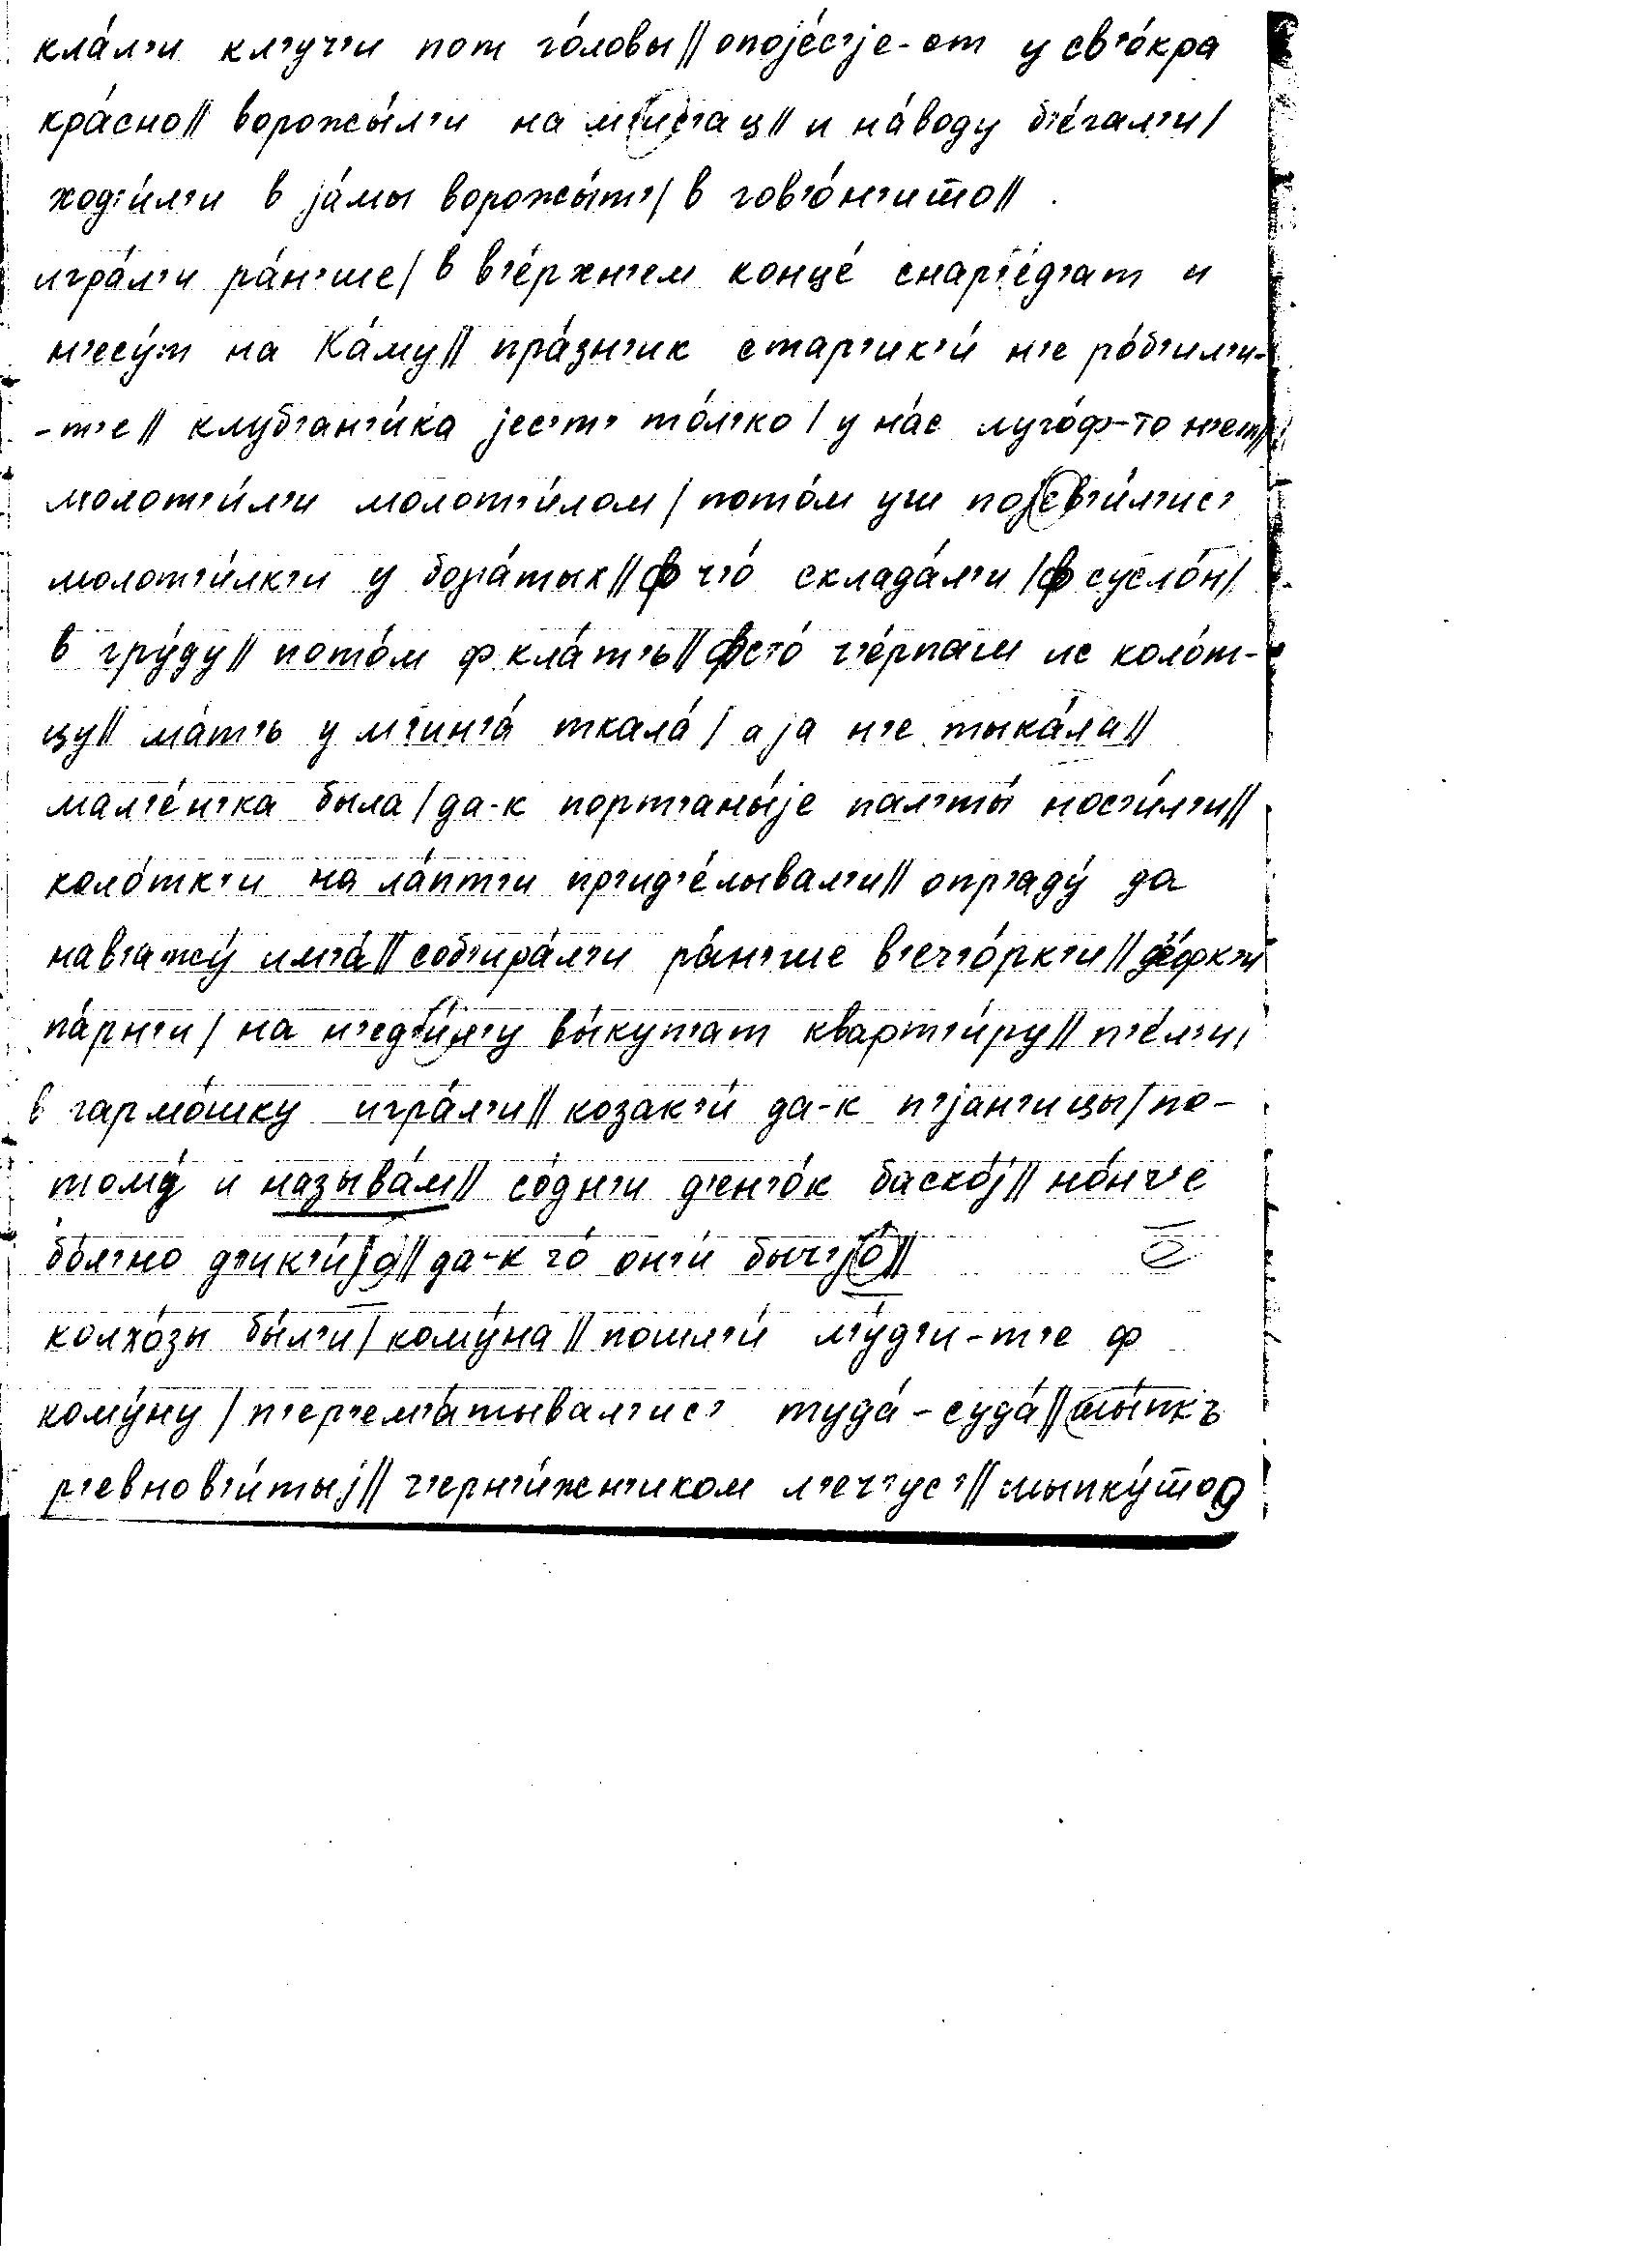 кла́л'и кл'уч'и пот го́ловы // опоjе́с'jе-от у св'о́кра
кра́сно // ворожы́л'и на м'и́с'ац // и на́воду б'е́гал'и /
ход'и́л'и в jа́мы ворожы́т' / в гов'о́н'ито //
игра́л'и ра́н'ше / в в'е́рхн'ем конце́ снар'е́д'ат и
н'есу́т на Ка́му // пра́зн'ик стар'ик'и́ н'е ро́б'ил'и-
-т'е // клуб'ан'и́ка jес'т' то́л'ко / у на́с луго́ф-то н'ет //
молот'и́л'и молот'и́лом / пото́м уш поjев'и́л'ис'
молот'и́лк'и у бога́тых // ф ч'о́ склада́л'и / ф сусло́н /
в гру́ду // пото́м ф кла́т'ь // фс'о́ ч'е́рпаш ис коло́т-
цу // ма́т'ь у м'ин'а́ ткала́ / а jа н'е тыка́ла //
мал'е́н'ка была / да-к порт'аны́jе пал'ты́ нос'и́л'и //
коло́тк'и на ла́пт'и пр'ид'е́лывал'и // опр'аду́ да
нав'ажу́ им'а́ // соб'ира́л'и ра́н'ше в'еч'о́рк'и // д'е́фк'и
па́рн'и / на н'ед'и́л'у вы́куп'ат кварт'и́ру // п'е́л'и,
в гармо́шку игра́л'и // козак'и́ да-к п'jа́н'ицы / по-
тому́ и называ́м // со́дн'и д'ен'о́к баско́j // но́нч'е
бо́л'но д'ик'и́jо // да-к го́ он'и́ быч'jо́ //
колхо́зы бы́л'и / кому́на // пошл'и́ л'у́д'и-т'е ф
кому́ну / п'ер'ем'а́тывал'ис' туда́-суда́ // шы́пкъ
р'евнов'и́тыj // ч'ерн'и́жн'иком л'еч'ус' // шыпку́тод